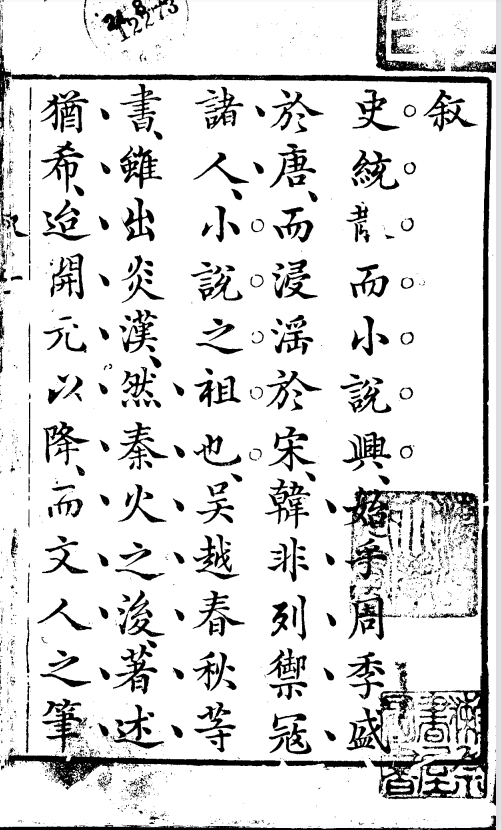 12273
叙
史統而小說興、始乎周季盛
於唐、而浸滛於宋、韓非列禦冦
諸人、小說之祖也、吴越春秋等
書、雖出炎漢、然秦火之後、著述
猶希、迨開元以降、而文人之筆